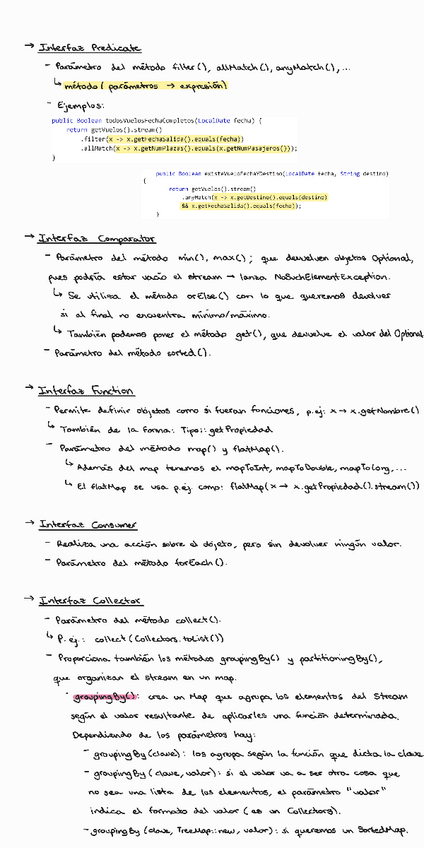 → Interfaz Predicate
- Parámetro del método filter(), allMatch(), anyMatch(),...
↳ método( parámetros → expresión)
- Ejemplos:
public Boolean todosVuelosFechaCompletos(LocalDate fecha) {
return getVuelos().stream()
.filter(x -> x.getFechaSalida().equals(fecha))
.allMatch(x -> x.getNumPlazas().equals(x.getNumPasajeros()));
}
public Boolean existeVueloFechaYDestino(LocalDate fecha, String destino)
{
return getVuelos().stream()
.anyMatch(x -> x.getDestino().equals(destino)
&& x.getFechaSalida().equals(fecha));
}
→ Interfaz Comparator
- Parámetro del método min(), max(); que devuelven objetos Optional,
pues podría estar vacío el stream → lanza NoSuchElementException.
↳ Se utiliza el método orElse() con lo que queremos devolver
si al final no encuentra mínimo/máximo.
↳ También podemos poner el método get(), que devuelve el valor del Optional
- Parámetro del método sorted().
→ Interfaz Function
- Permite definir objetos como si fueran funciones, p.ej: x → x.getNombre()
↳ También de la forma: Tipo::getPropiedad
- Parámetro del método map() y flatMap().
↳ Además del map tenemos el mapToInt, mapToDouble, mapToLong,...
↳ El flatMap se usa p.ej. como: flatMap(x → x.getPropiedad().stream())
→ Interfaz Consumer
- Realiza una acción sobre el objeto, pero sin devolver ningún valor.
- Parámetro del método forEach().
→ Interfaz Collector
- Parámetro del método collect().
↳ P. ej.: collect(Collectors.toList())
- Proporciona también los métodos groupingBy() y partitioningBy(),
que organizan el stream en un map.
· groupingBy(): crea un Map que agrupa los elementos del Stream
según el valor resultante de aplicarles una función determinada.
Dependiendo de los parámetros hay:
- groupingBy(clave): los agrupa según la función que dicta la clave
- groupingBy(clave, valor): si el valor va a ser otra cosa que
no sea una lista de los elementos, el parámetro "valor"
indica el formato del valor (es un Collectors).
- groupingBy(clave, TreeMap::new, valor): si queremos un SortedMap.